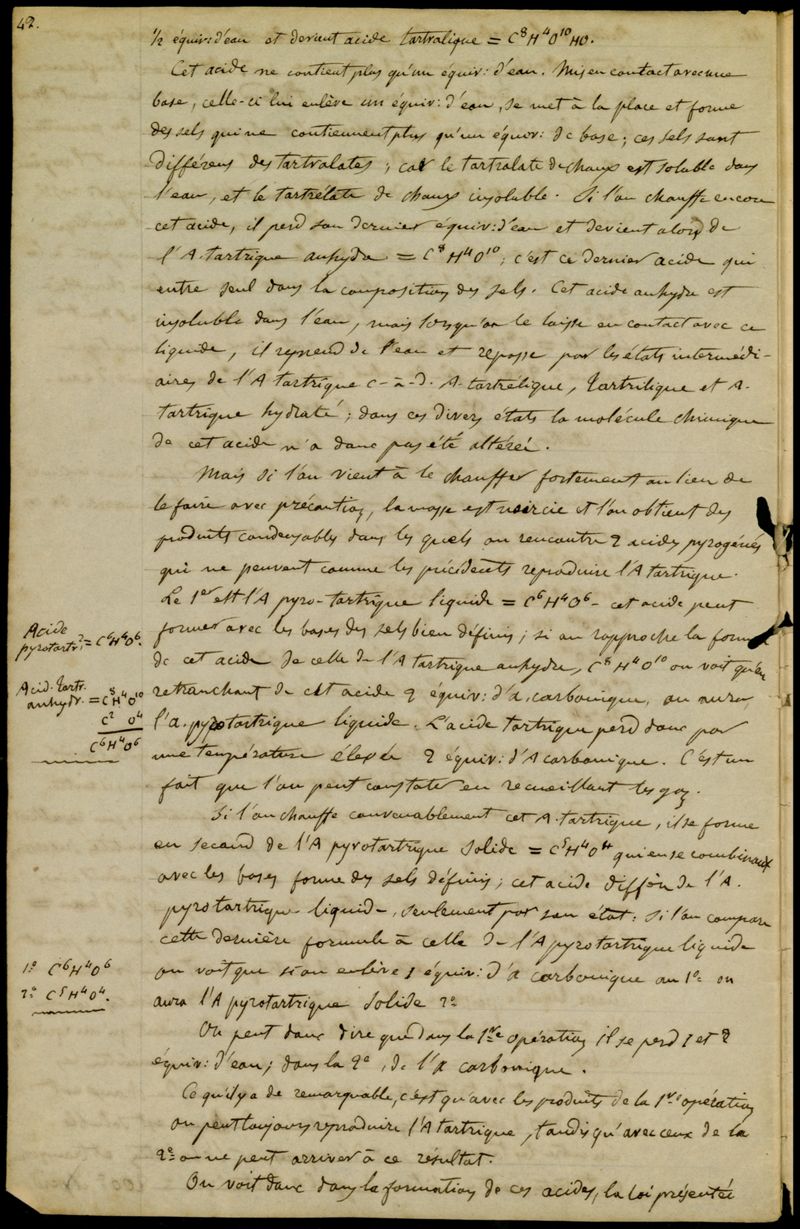 42.
1/2 équiv: d'eau et devient acide tartralique = C⁸H⁴O¹⁰HO.
Cet acide ne contient plus qu'un équiv: d'eau. Mis en contact avec une
base, celle-ci lui enlève un équiv: d'eau, se met à la place et forme
des sels qui ne contiennent plus qu'un équiv: de base; ces sels sont
différens des tartralates; car le tartralate de chaux est soluble dans
l'eau, et le tartrélate de chaux insoluble. Si l'on chauffe encore
cet acide, il perd son dernier équiv: d'eau et devient alors de
l'A. tartrique anhydre = C⁸H⁴O¹⁰; c'est ce dernier acide qui
entre seul dans la composition des sels. Cet acide anhydre est
insoluble dans l'eau, mais lorsqu'on le laisse en contact avec ce
liquide, il reprend de l'eau et repasse par les états intermédi-
aires de l'A tartrique c-à-d. A. tartrélique, tartrilique et A.
tartrique hydraté; dans ces divers états la molécule chimique
de cet acide n'a donc pas été altérée.
Mais si l'on vient à le chauffer fortement au lieu de
le faire avec précaution, la masse est noircie et l'on obtient des
produits condensables dans les quels on rencontre 2 acides pyrogénés
qui ne peuvent comme les précédents reproduire l'A tartrique.
Le 1er est l'A pyro-tartrique liquide = C⁶H⁴O⁶ - cet acide peut
former avec les bases des sels bien définis; si on rapproche la formule
de cet acide de celle de l'A tartrique anhydre, C⁸H⁴O¹⁰ on voit qu'en
retranchant de cet acide 2 équiv: d'a. carbonique, on aura
l'a. pyrotartrique liquide. L'acide tartrique perd donc par
une température élevée 2 équiv: d'A carbonique. C'est un
fait que l'on peut constater en recueillant les gaz.
Si l'on chauffe convenablement cet A. tartrique, il se forme
en second de l'A pyrotartrique solide = C⁵H⁴O⁴ qui en se combinant
avec les bases forme des sels définis; cet acide diffère de l'A.
pyrotartrique liquide, seulement par son état: si l'on compare
cette dernière formule à celle de l'A pyrotartrique liquide
on voit que si on enlève 1 équiv: d'a carbonique au 1er on
aura l'A pyrotartrique solide 2º
On peut donc dire que dans la 1re opération il se perd 1 et 2
équiv: d'eau; dans la 2e, de l'a carbonique.
Ce qu'il y a de remarquable, c'est qu'avec les produits de la 1re opération
on peut toujours reproduire l'A tartrique, tandis qu'avec ceux de la
2e on ne peut arriver à ce résultat.
On voit donc dans la formation de ces acides, la loi présentée
Acide
pyrotartr: = C⁶H⁴O⁶.
Acid. tartr.
anhydr. = C⁸H⁴O¹⁰
C² O⁴
C⁶H⁴O⁶
1º C⁶H⁴O⁶
2º C⁵H⁴O⁴.